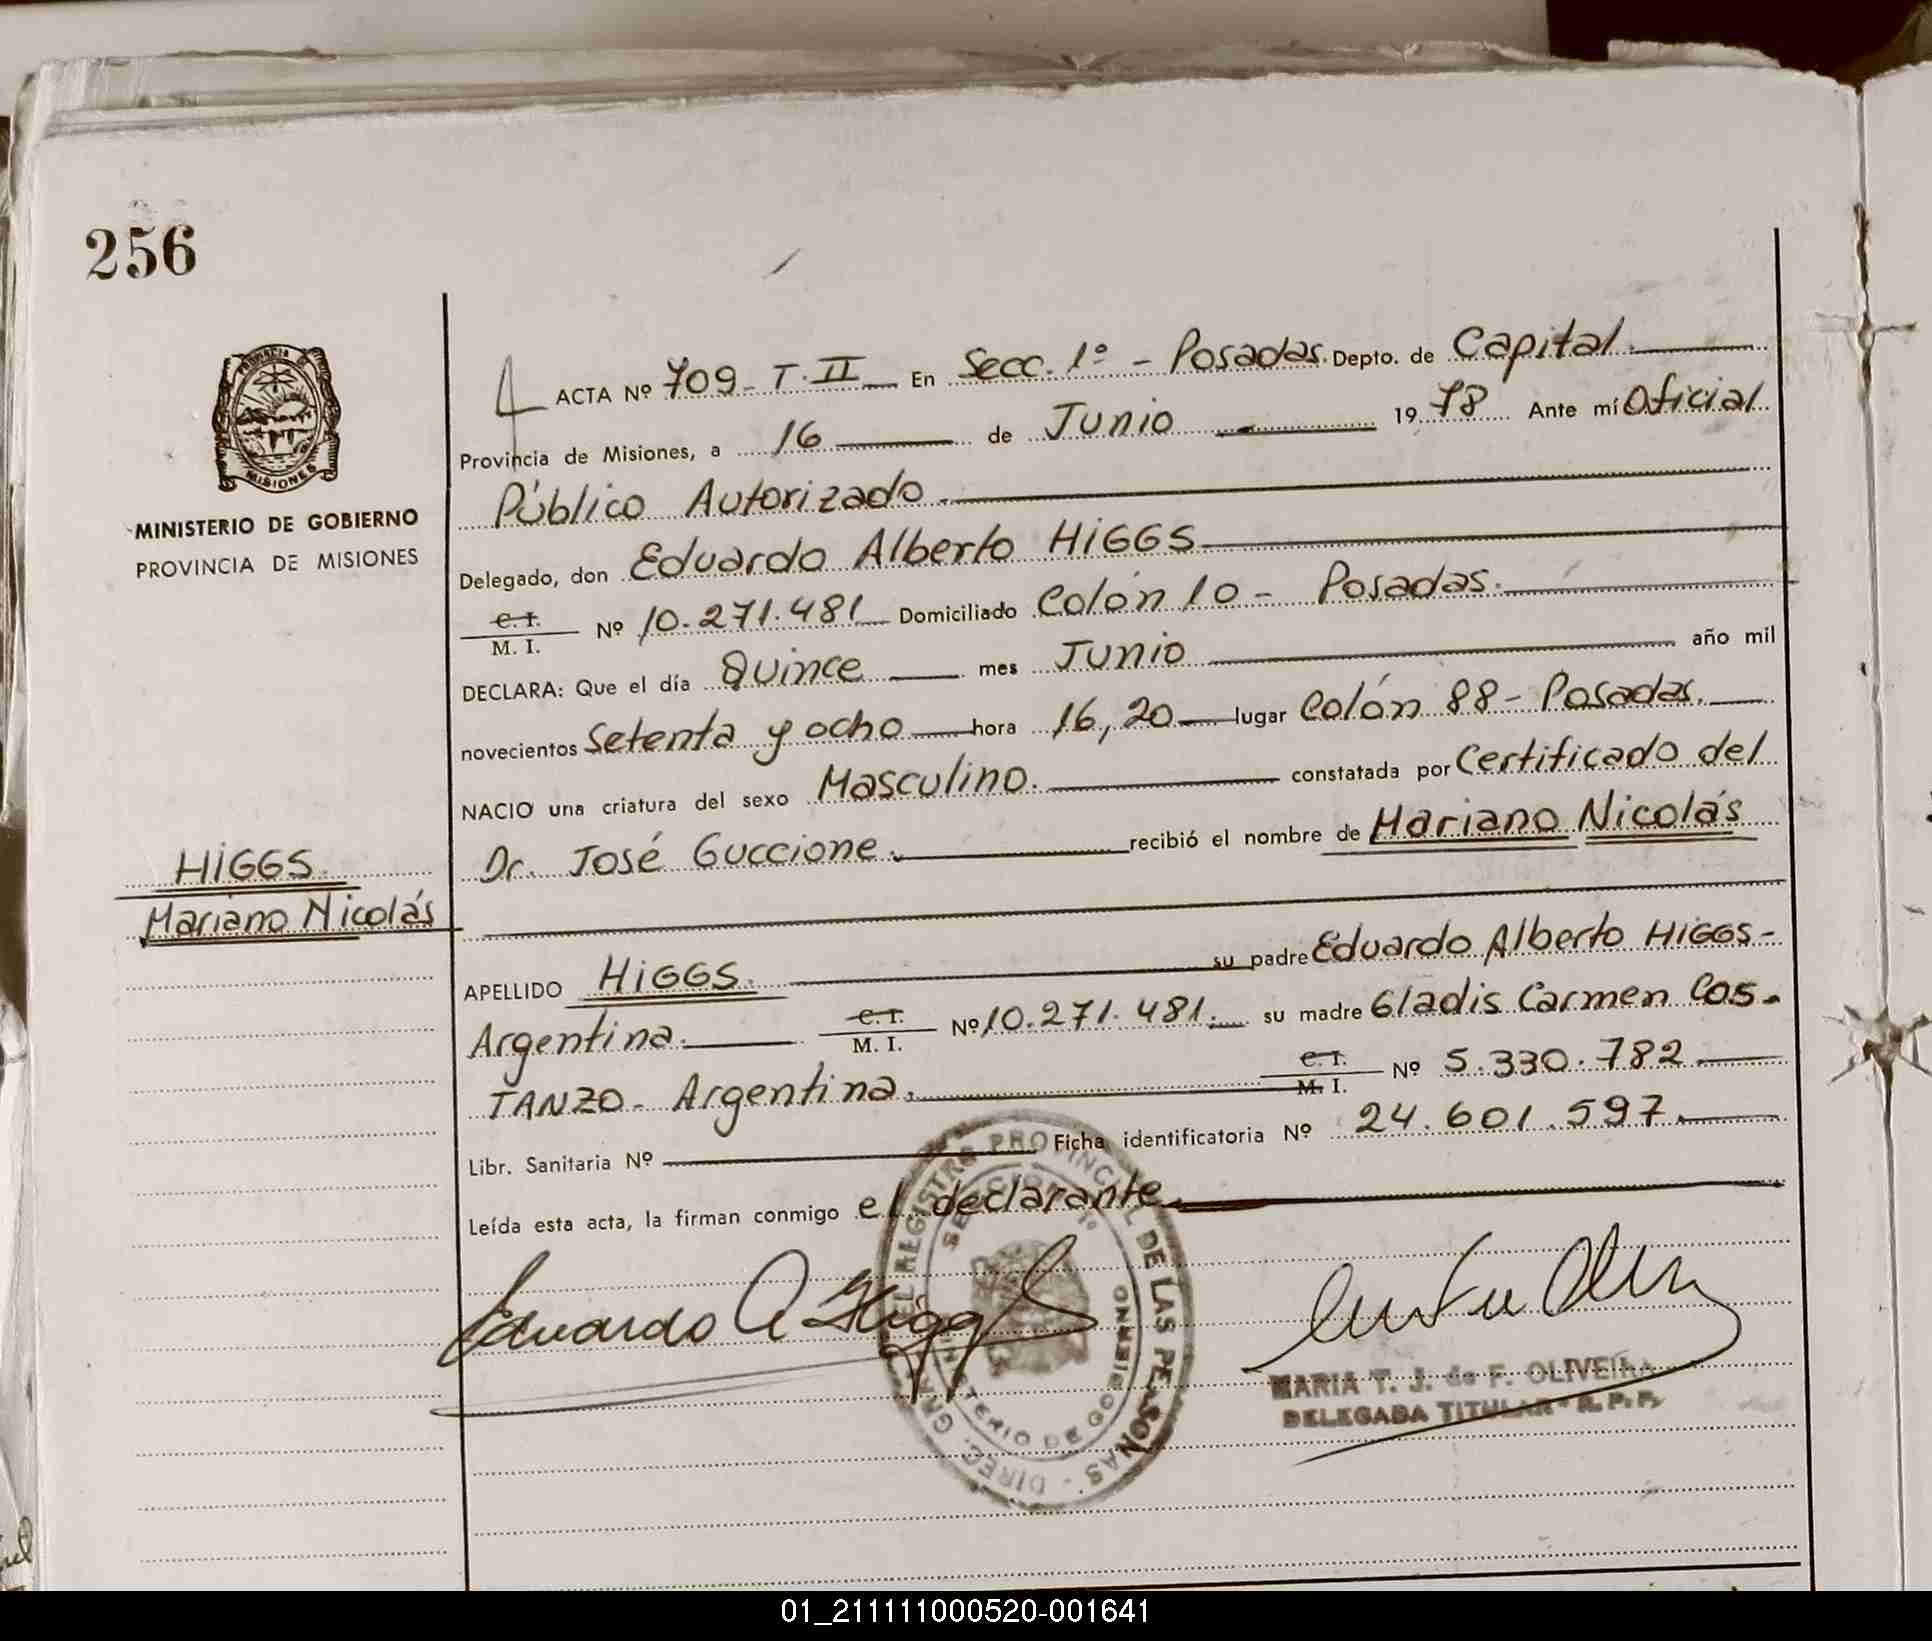 256
PROVINCIA DE
MISIONES
MINISTERIO DE GOBIERNO
PROVINCIA DE MISIONES
HiGGS
Mariano Nicolás
ACTA Nº 709 - T. II En Secc. 1º - Posadas. Depto. de Capital.
Provincia de Misiones, a 16 de Junio 1978 Ante mí Oficial
Público Autorizado.
Delegado, don Eduardo Alberto HiGGS
C. I.
M. I. Nº 10.271.481 Domiciliado Colón 10 - Posadas.
DECLARA: Que el día Quince mes Junio año mil
novecientos Setenta y ocho hora 16,20 lugar Colón 88 - Posadas.
NACIO una criatura del sexo Masculino. constatada por Certificado del
Dr. José Guccione. recibió el nombre de Mariano Nicolás
APELLIDO HiGGS. su padre Eduardo Alberto HiGGS -
Argentina. C. I. M. I. Nº 10.271.481. su madre Gladis Carmen Cos-
TANZO - Argentina. C. I. M. I. Nº 5.330.782
Libr. Sanitaria Nº Ficha identificatoria Nº 24.601.597.
Leída esta acta, la firman conmigo el declarante
Eduardo A Higgs
DIREC. GRAL. DEL REGISTRO PROVINCIAL DE LAS PERSONAS
SECCION 1º
MINISTERIO DE GOBIERNO
MARIA T. J. de F. OLIVEIRA
DELEGADA TITULAR - R. P. P.
01_211111000520-001641